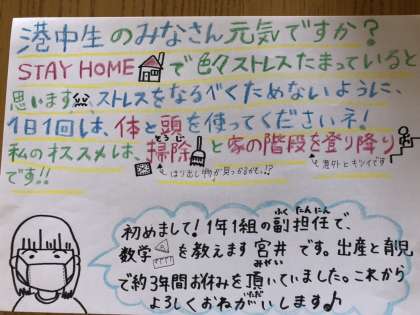 港中生のみなさん元気ですか?
STAY HOMEで色々ストレスたまっていると
思いますストレスをなるべくためないように、
1日1回は、体と頭を使ってくださいネ!
私のオススメは、掃除と家の階段を登り降り
そうじ
です!!
はり出し物が見つかるかも!?
意外とキツイです
初めまして!1年1組の副担任で、
ふくたんにん
数学を教えます宮井です。出産と育児
みやい
で約3年間お休みを頂いていました。これから
いただ
よろしくおねがいします♪